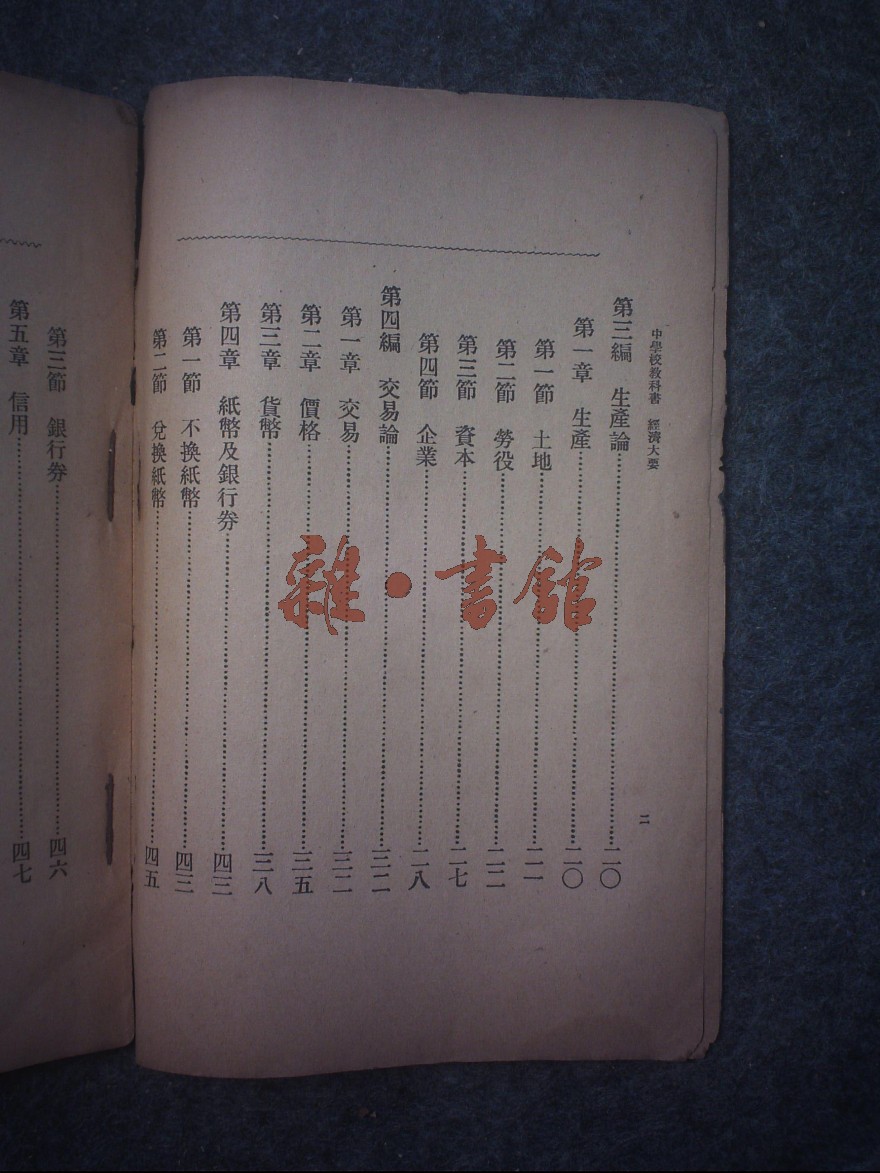 中學校教科書　經濟大要
二
第三編　生產論…………二〇
第一章　生產…………二〇
第一節　土地…………二一
第二節　勞役…………二二
第三節　資本…………二七
第四節　企業…………二八
第四編　交易論…………三二
第一章　交易…………三二
第二章　價格…………三五
第三章　貨幣…………三八
第四章　紙幣及銀行券…………四三
第一節　不換紙幣…………四三
第二節　兌換紙幣…………四五
第三節　銀行券…………四六
第五章　信用…………四七
雜·書館